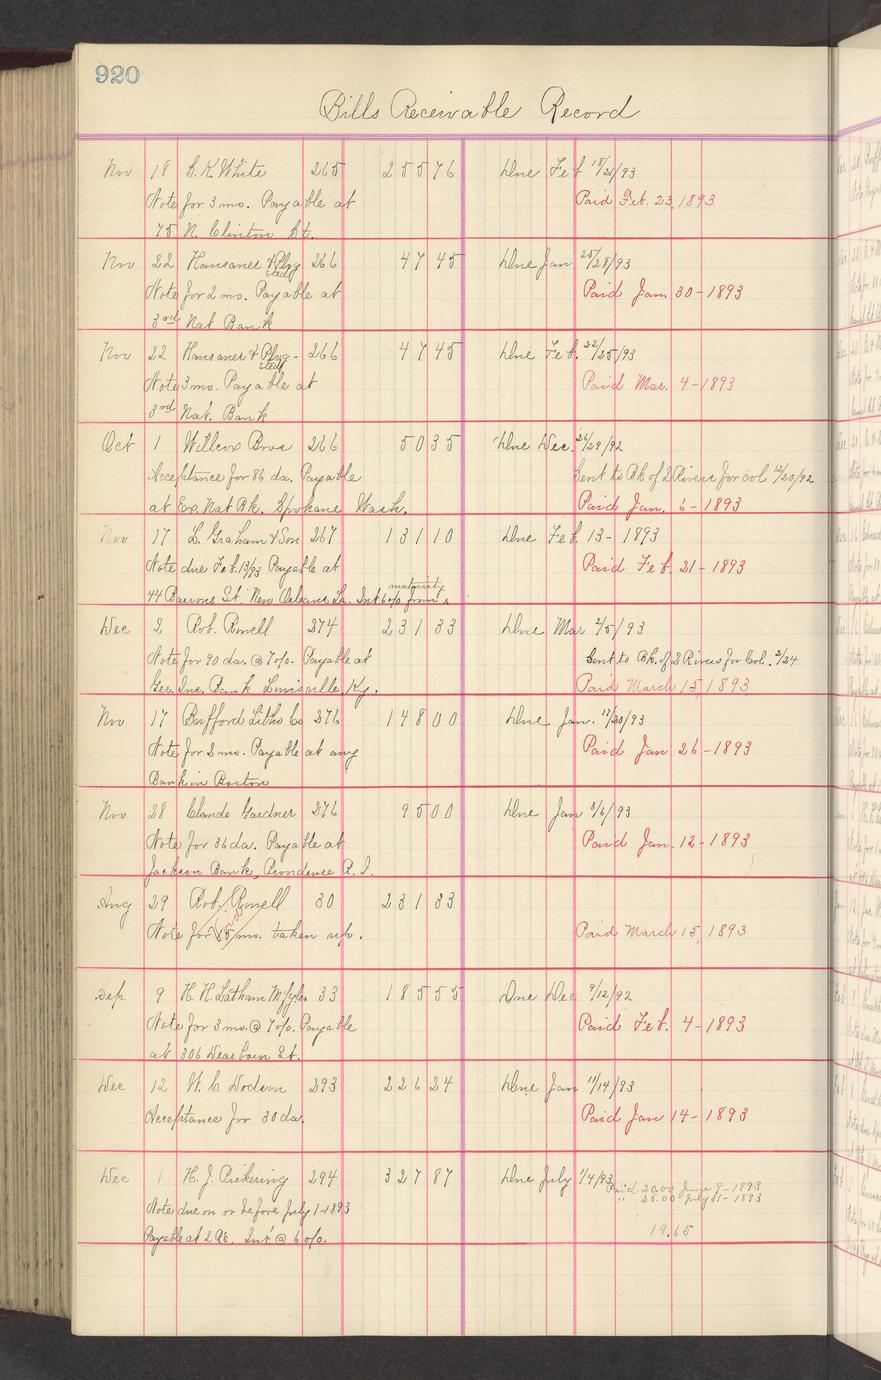 920
Bills Receivable Record
Nov 18 S. K. White 265 255 76 Due Feb 18/21/93
Note for 3 mo. Payable at Paid Feb. 23, 1893
75 N. Clinton St.
Nov 22 Hausauer & 266 47 45 Due Jan 25/28/93
Note for 2 mo. Payable at Paid Jan 30-1893
3rd Nat Bank
Nov 22 Hausauer & 266 47 45 Due Feb. 22/25/93
Note 3 mo. Payable at Paid Mar. 4-1893
3rd Nat. Bank
Oct 1 Willcox Bros 266 50 35 Due Dec. 26/29/92
Acceptance for 86 da. Payable Sent to Bk of 2 Rivers for col 12/20/92
at Ex. Nat Bk. Spokane Wash. Paid Jan. 6-1893
Nov 17 L. Graham & Son 267 131 10 Due Feb. 13-1893
Note due Feb. 13/93 Payable at Paid Feb. 21-1893
maturity
44 Baronne St. New Orleans La. Int 6 o/o from
Dec 2 Rob. Rowell 274 231 33 Due Mar 2/5/93
Note for 90 da. @ 7 o/o. Payable at Sent to Bk. of 2 Rivers for Col. 2/24
Ger. Ins. Bank Louisville, Ky. Paid March 15, 1893
Nov 17 Bufford Litho Co 276 148 00 Due Jan. 17/20/93
Note for 2 mo. Payable at any Paid Jan 26-1893
Bank in Boston
Nov 28 Claude Gardner 276 95 00 Due Jan 3/6/93
Note for 36 da. Payable at Paid Jan. 12-1893
Jackson Bank, Providence R. I.
Aug 29 Rob. Rowell 30 231 33
Note for mo. taken up. Paid March 15, 1893
Sep 9 H. H. Latham Mfg Co. 33 185 55 Due Dec 9/12/92
Note for 3 mo. @ 7 o/o. Payable Paid Feb. 4-1893
at 306 Dearborn St.
Dec 12 W. C. Dodson 293 226 24 Due Jan 11/14/93
Acceptance for 30 da. Paid Jan 14-1893
Dec 1 H. J. Pickering 294 327 87 Due July 1/4/93
Paid 20.00 June 9-1893
Note due on or before July 1-1893 " 25.00 July 21-1893
19.65
Payable at 2 Rs. Int @ 6 o/o.